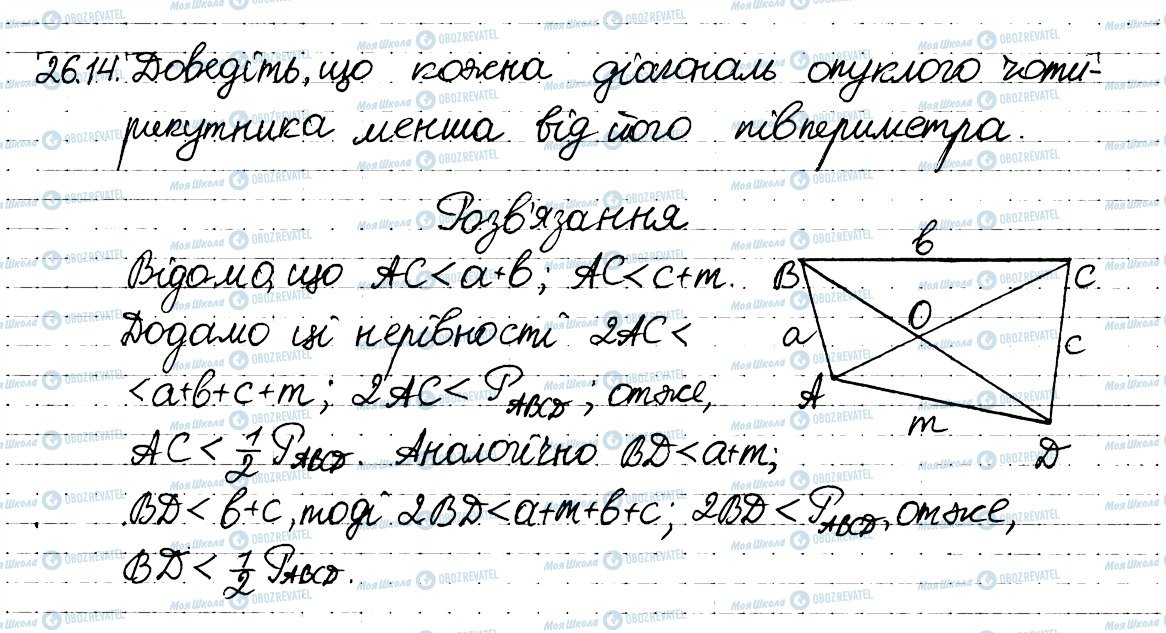 26.14. Доведіть, що кожна діагональ опуклого чоти-
рикутника менша від його півпериметра.
Розв'язання
Відомо, що AC < a+b; AC < c+m.
Додамо ці нерівності 2AC <
< a+b+c+m; 2AC < P_ABCD; отже,
AC < 1/2 P_ABCD. Аналогічно BD < a+m;
BD < b+c, тоді 2BD < a+m+b+c; 2BD < P_ABCD, отже,
BD < 1/2 P_ABCD.
b
B C
O
a c
A
m
D
Моя Школа OBOZREVATEL